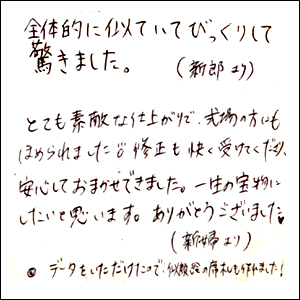 全体的に似ていてびっくりして
驚きました。
(新郎より)
とても素敵な仕上がりで、式場の方にも
ほめられました!! 修正も快く受けてくださり、
安心しておまかせできました。一生の宝物に
したいと思います。ありがとうございました。
(新婦より)
◎ データをいただけたので、似顔絵の席札も作れました!